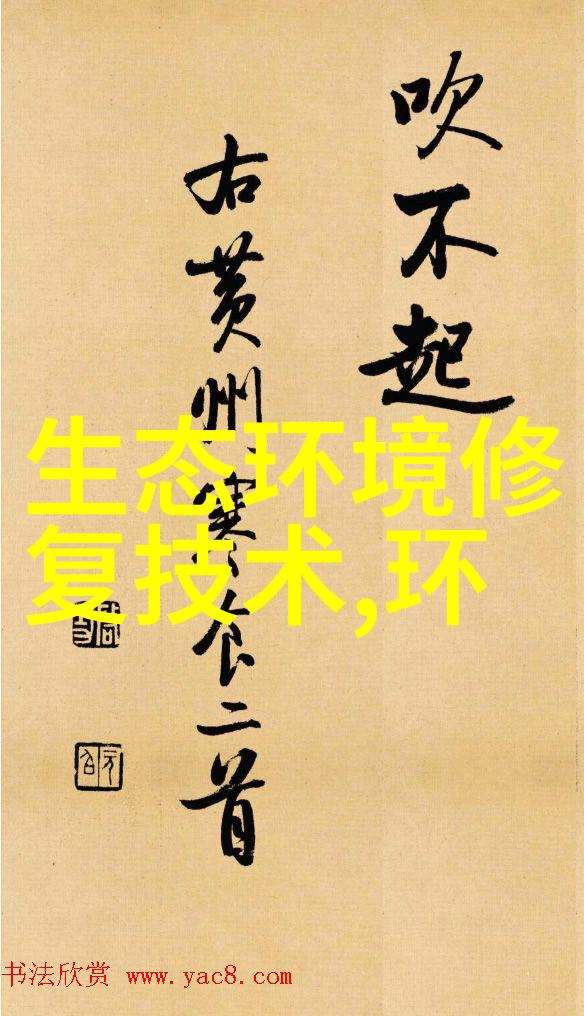 吹不起
右黄州寒食二首
生态环境修
复技术,环
书法欣赏 www.yac8.com